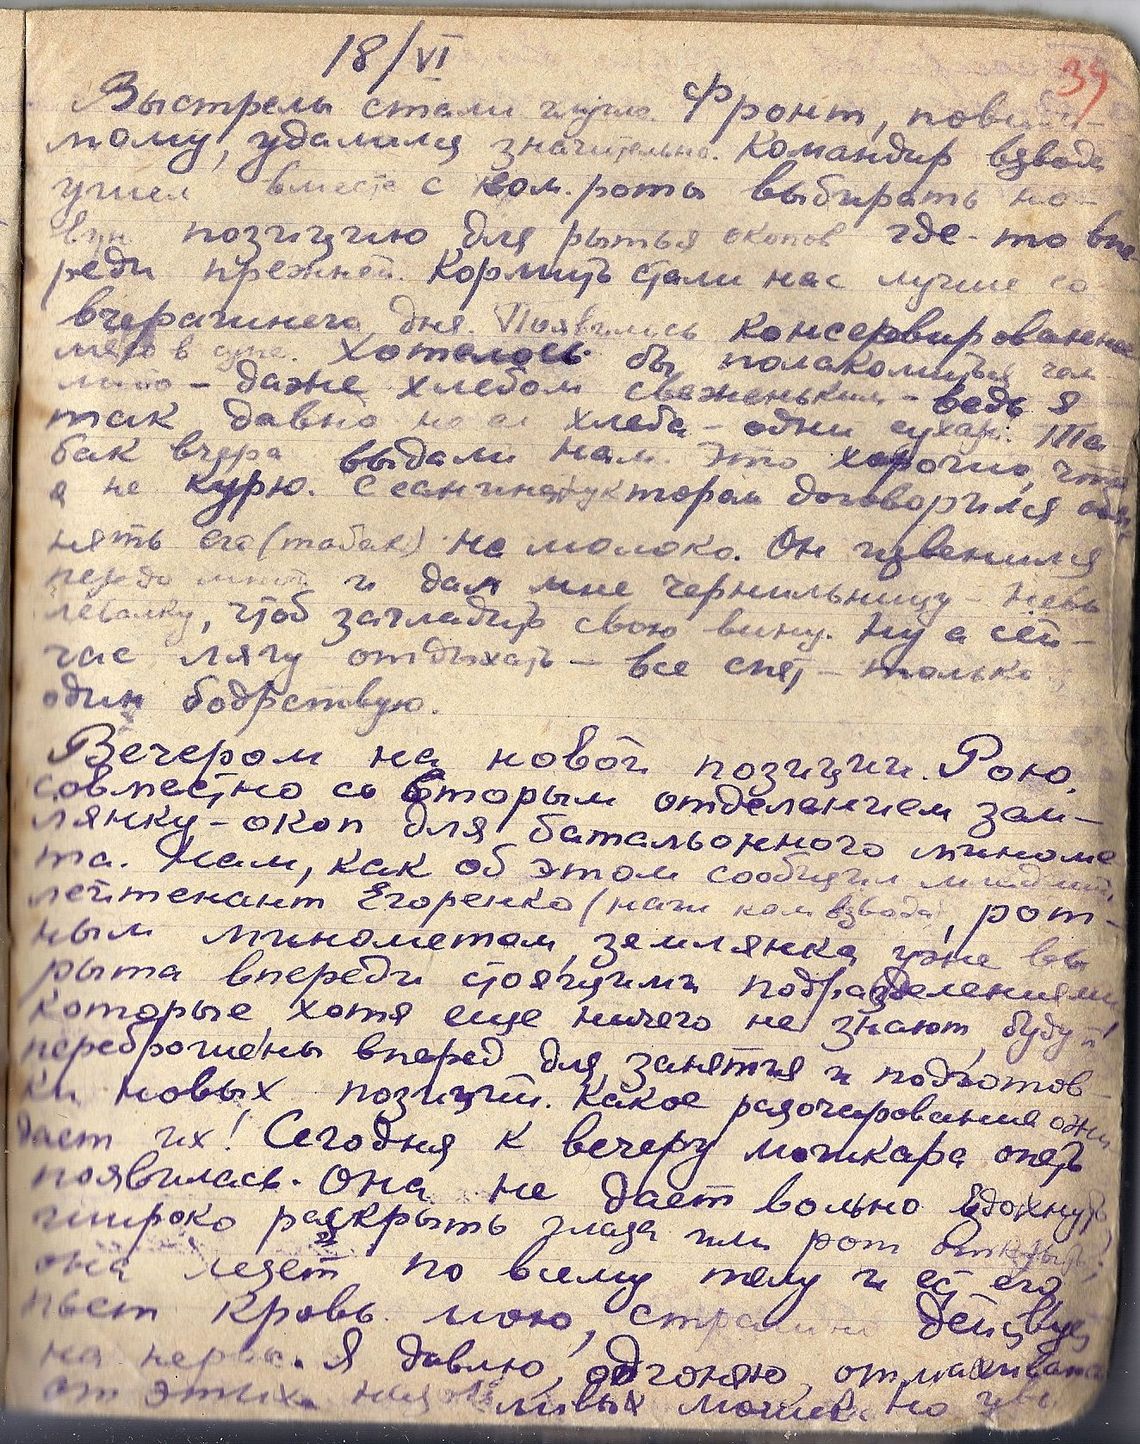 18/VI
39
Выстрелы стали глуше. Фронт, повиди-
мому, удалился значительно. Командир взвода
ушел вместе с ком.роты выбирать но-
вую позицию для рытья окопов где-то впе-
реди прежней. Кормить стали нас лучше со
вчерашнего дня. Появилось консервированное
мясо в супе. Хотелось бы полакомиться чем-
либо - даже хлебом свеженьким - ведь я
так давно не ел хлеба - одни сухари. Та-
бак вчера выдали нам. Это хорошо, что
я не курю. С санинструктором договорился обме-
нять его (табак) на молоко. Он извенился
передо мной и дал мне чернильницу - невы-
ливалку, чтоб загладить свою вину. Ну а сей-
час лягу отдыхать - все спят - только я
один бодрствую.
Вечером на новой позиции. Рою,
совместно со вторым отделением зем-
лянку - окоп для батальонного миноме-
та. Нам, как об этом сообщил младший
лейтенант Егоренко (наш ком взвода), рот-
ным минометам, землянка уже вы
рыта впереди стоящими подразделениями
которые, хотя еще ничего не знают, будут
переброшены вперед для занятия и подготов-
ки новых позиций. Какое разочарование ожи
дает их! Сегодня к вечеру мошкара опять
появилась. Она не дает вольно вдохнуть,
широко раскрыть глаза или рот открыть;
она лезет по всему телу и ест его,
пьет кровь мою, страшно действует
на нервы. Я давлю, отгоняю, отмахиваюсь
от этих мошек но увы